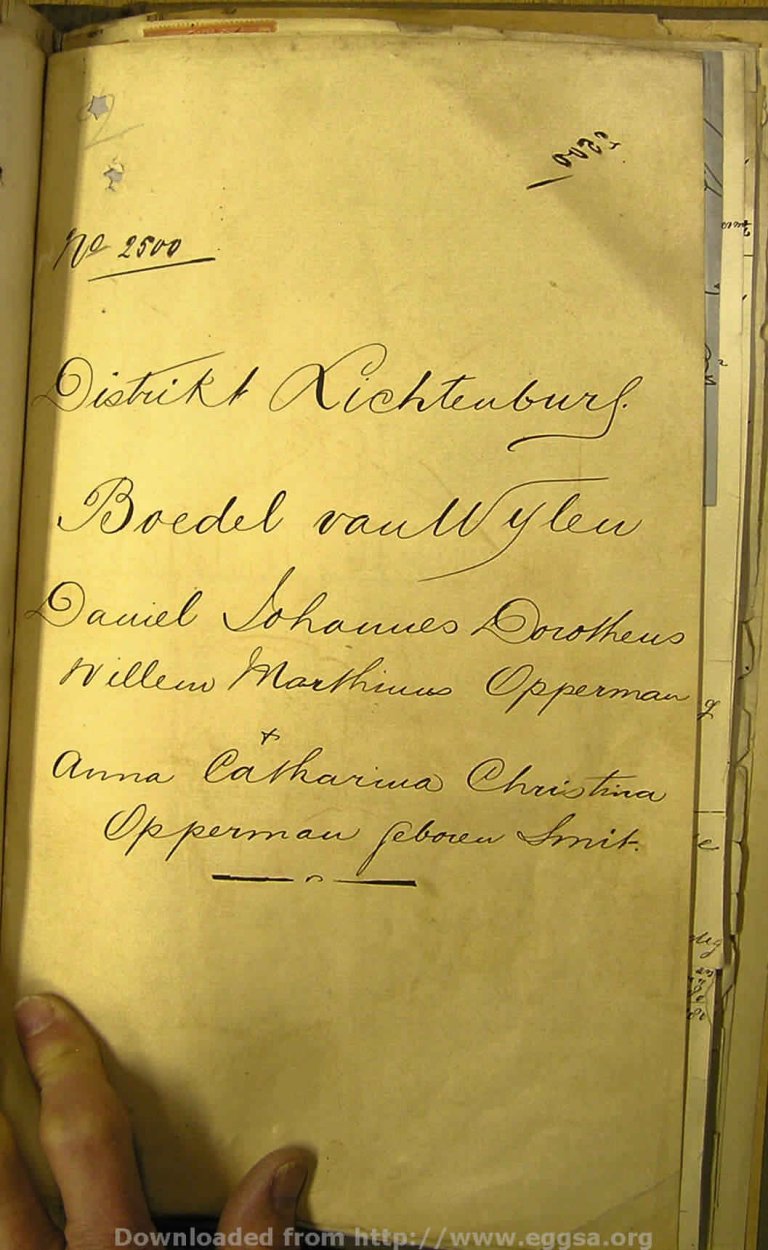 No 2500
Distrikt Lichtenburg.
Boedel van Wylen
Daniel Johannes Dorotheus
Willem Marthinus Opperman
+
Anna Catharina Christina
Opperman geboren Smit.
Downloaded from http://www.eggsa.org